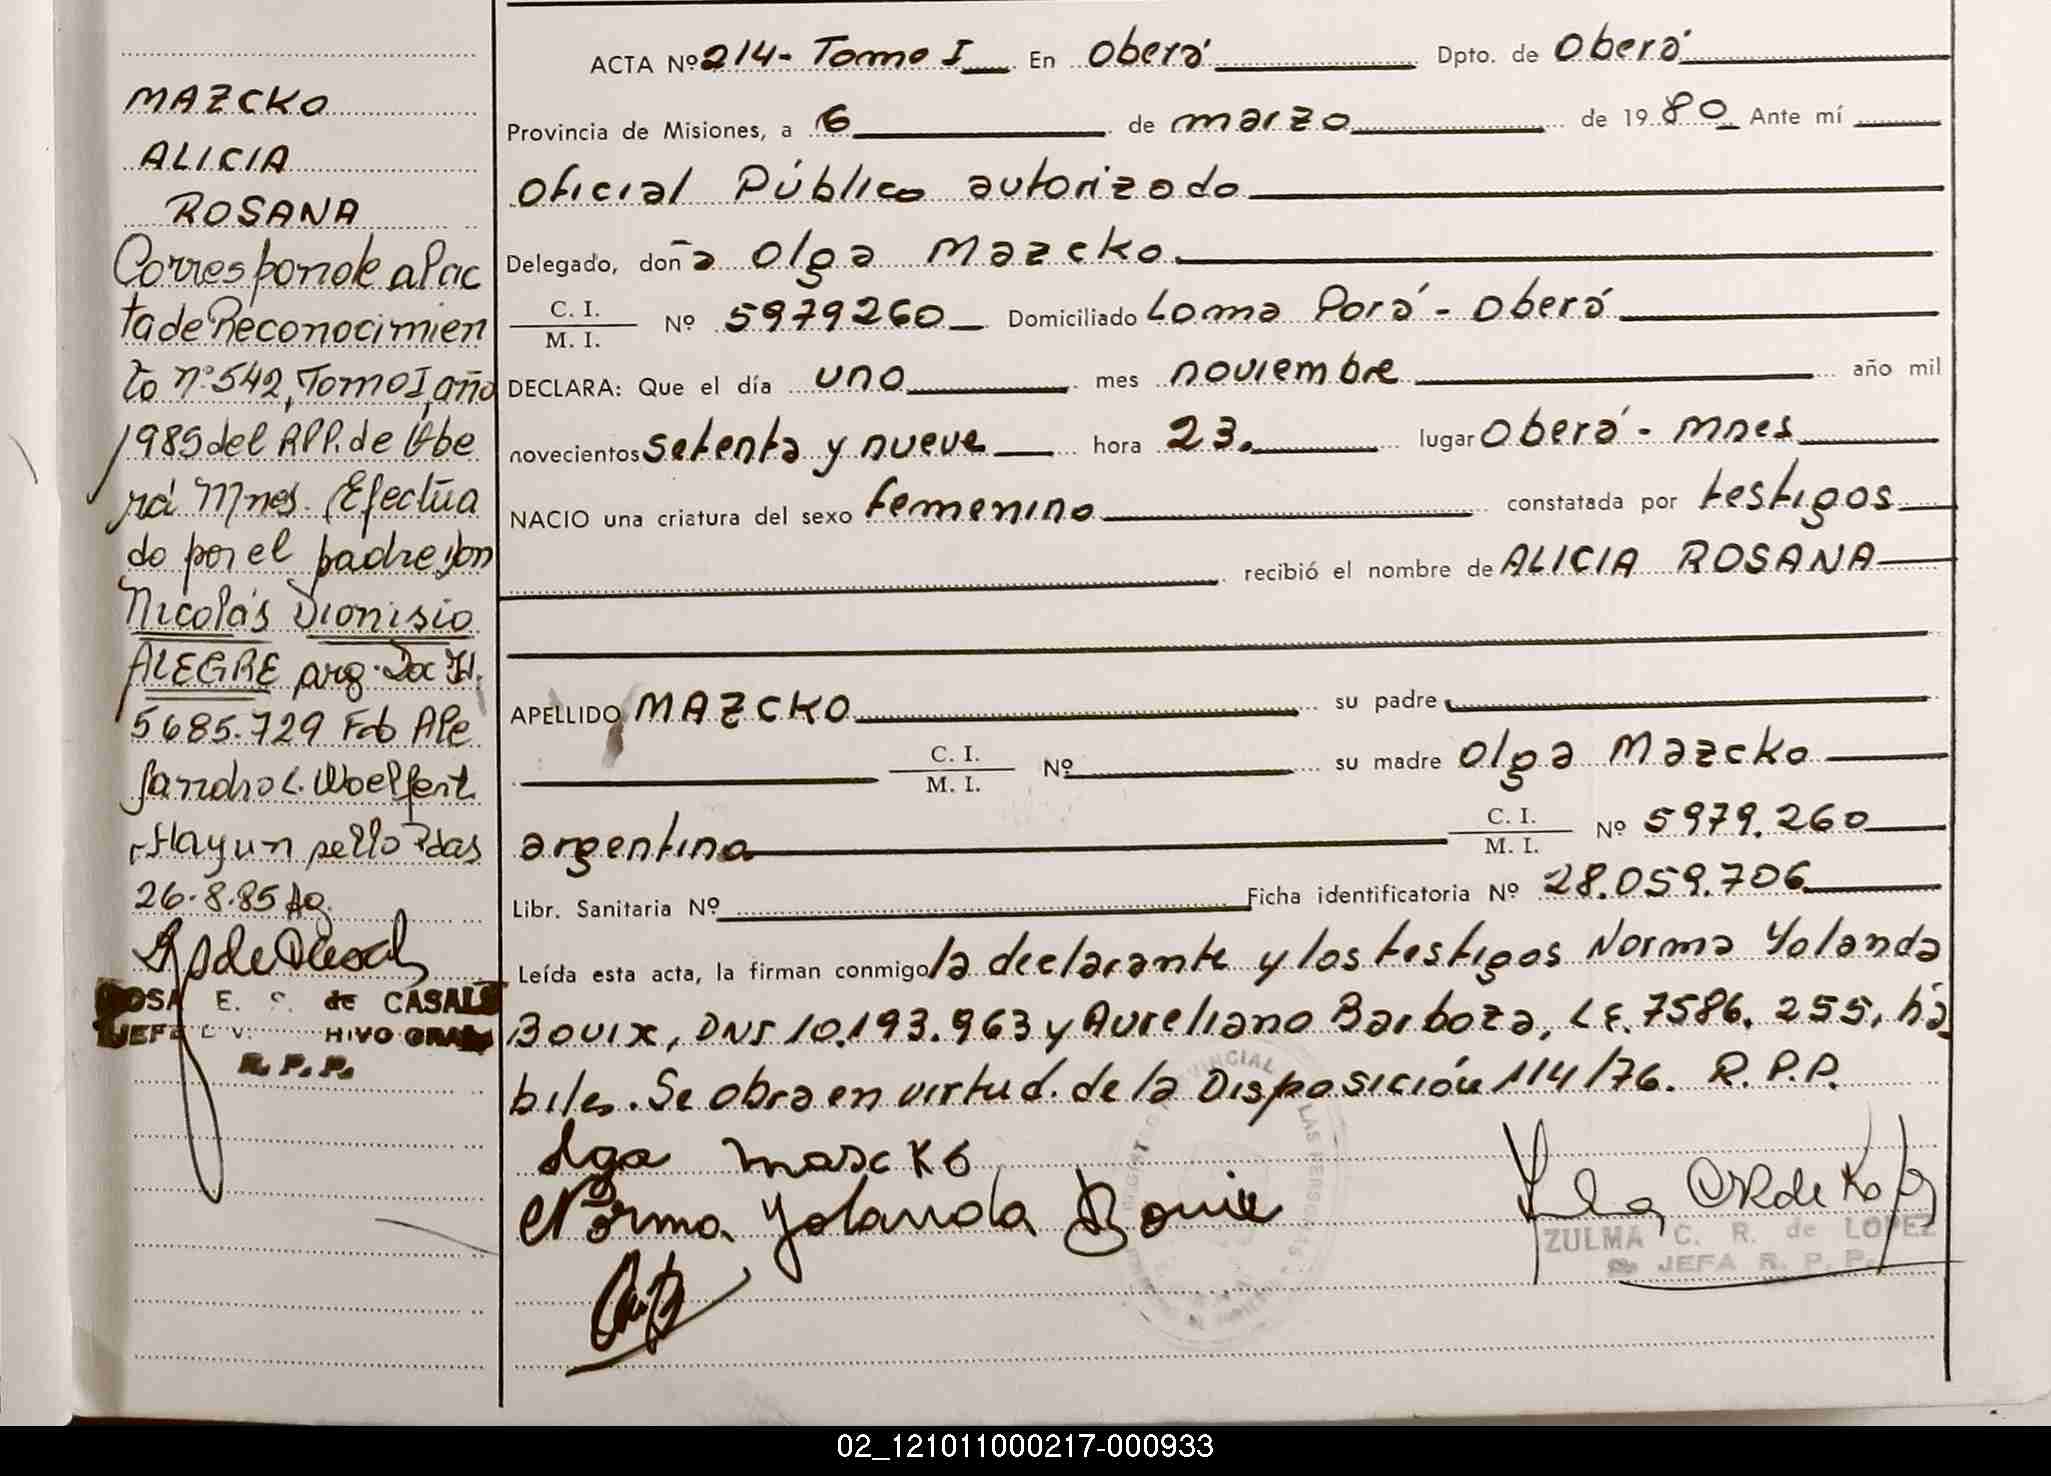 MAZCKO
ALICIA
ROSANA
Corresponde al ac
ta de Reconocimien
to nº 542, Tomo I, año
1985 del RPP. de Obe
rá Mnes. Efectua
do por el padre Don
Nicolás Dionisio
ALEGRE arg. Doc Id.
5685.729 Fdo Ale
jandro L. Woelfert
Hay un sello Pdas
26-8-85
ROSA E. de CASALS
JEFE HIVO GRAL
R. P. P.
ACTA Nº 214- Tomo I En Oberá Dpto. de Oberá
Provincia de Misiones, a 6 de marzo de 1980 Ante mí
Oficial Público autorizado
Delegado, doña Olga Mazcko
C. I. / M. I. Nº 5979260 Domiciliado Loma Porá - Oberá
DECLARA: Que el día uno mes noviembre año mil
novecientos setenta y nueve hora 23. lugar Oberá - Mnes
NACIO una criatura del sexo femenino constatada por testigos
recibió el nombre de ALICIA ROSANA
APELLIDO MAZCKO su padre
C. I. / M. I. Nº su madre Olga Mazcko
argentina C. I. / M. I. Nº 5979.260
Libr. Sanitaria Nº Ficha identificatoria Nº 28.059.706
Leída esta acta, la firman conmigo la declarante y los testigos Norma Yolanda
Bouix, DNI 10.193.963 y Aureliano Barboza, L E. 7586. 255, há
biles. Se obra en virtud. de la Disposición 114/76. R. P. P.
Olga Mascko
Norma Yolanda Bouix
ZULMA C. R. de LOPEZ
JEFA R. P. P.
02_121011000217-000933